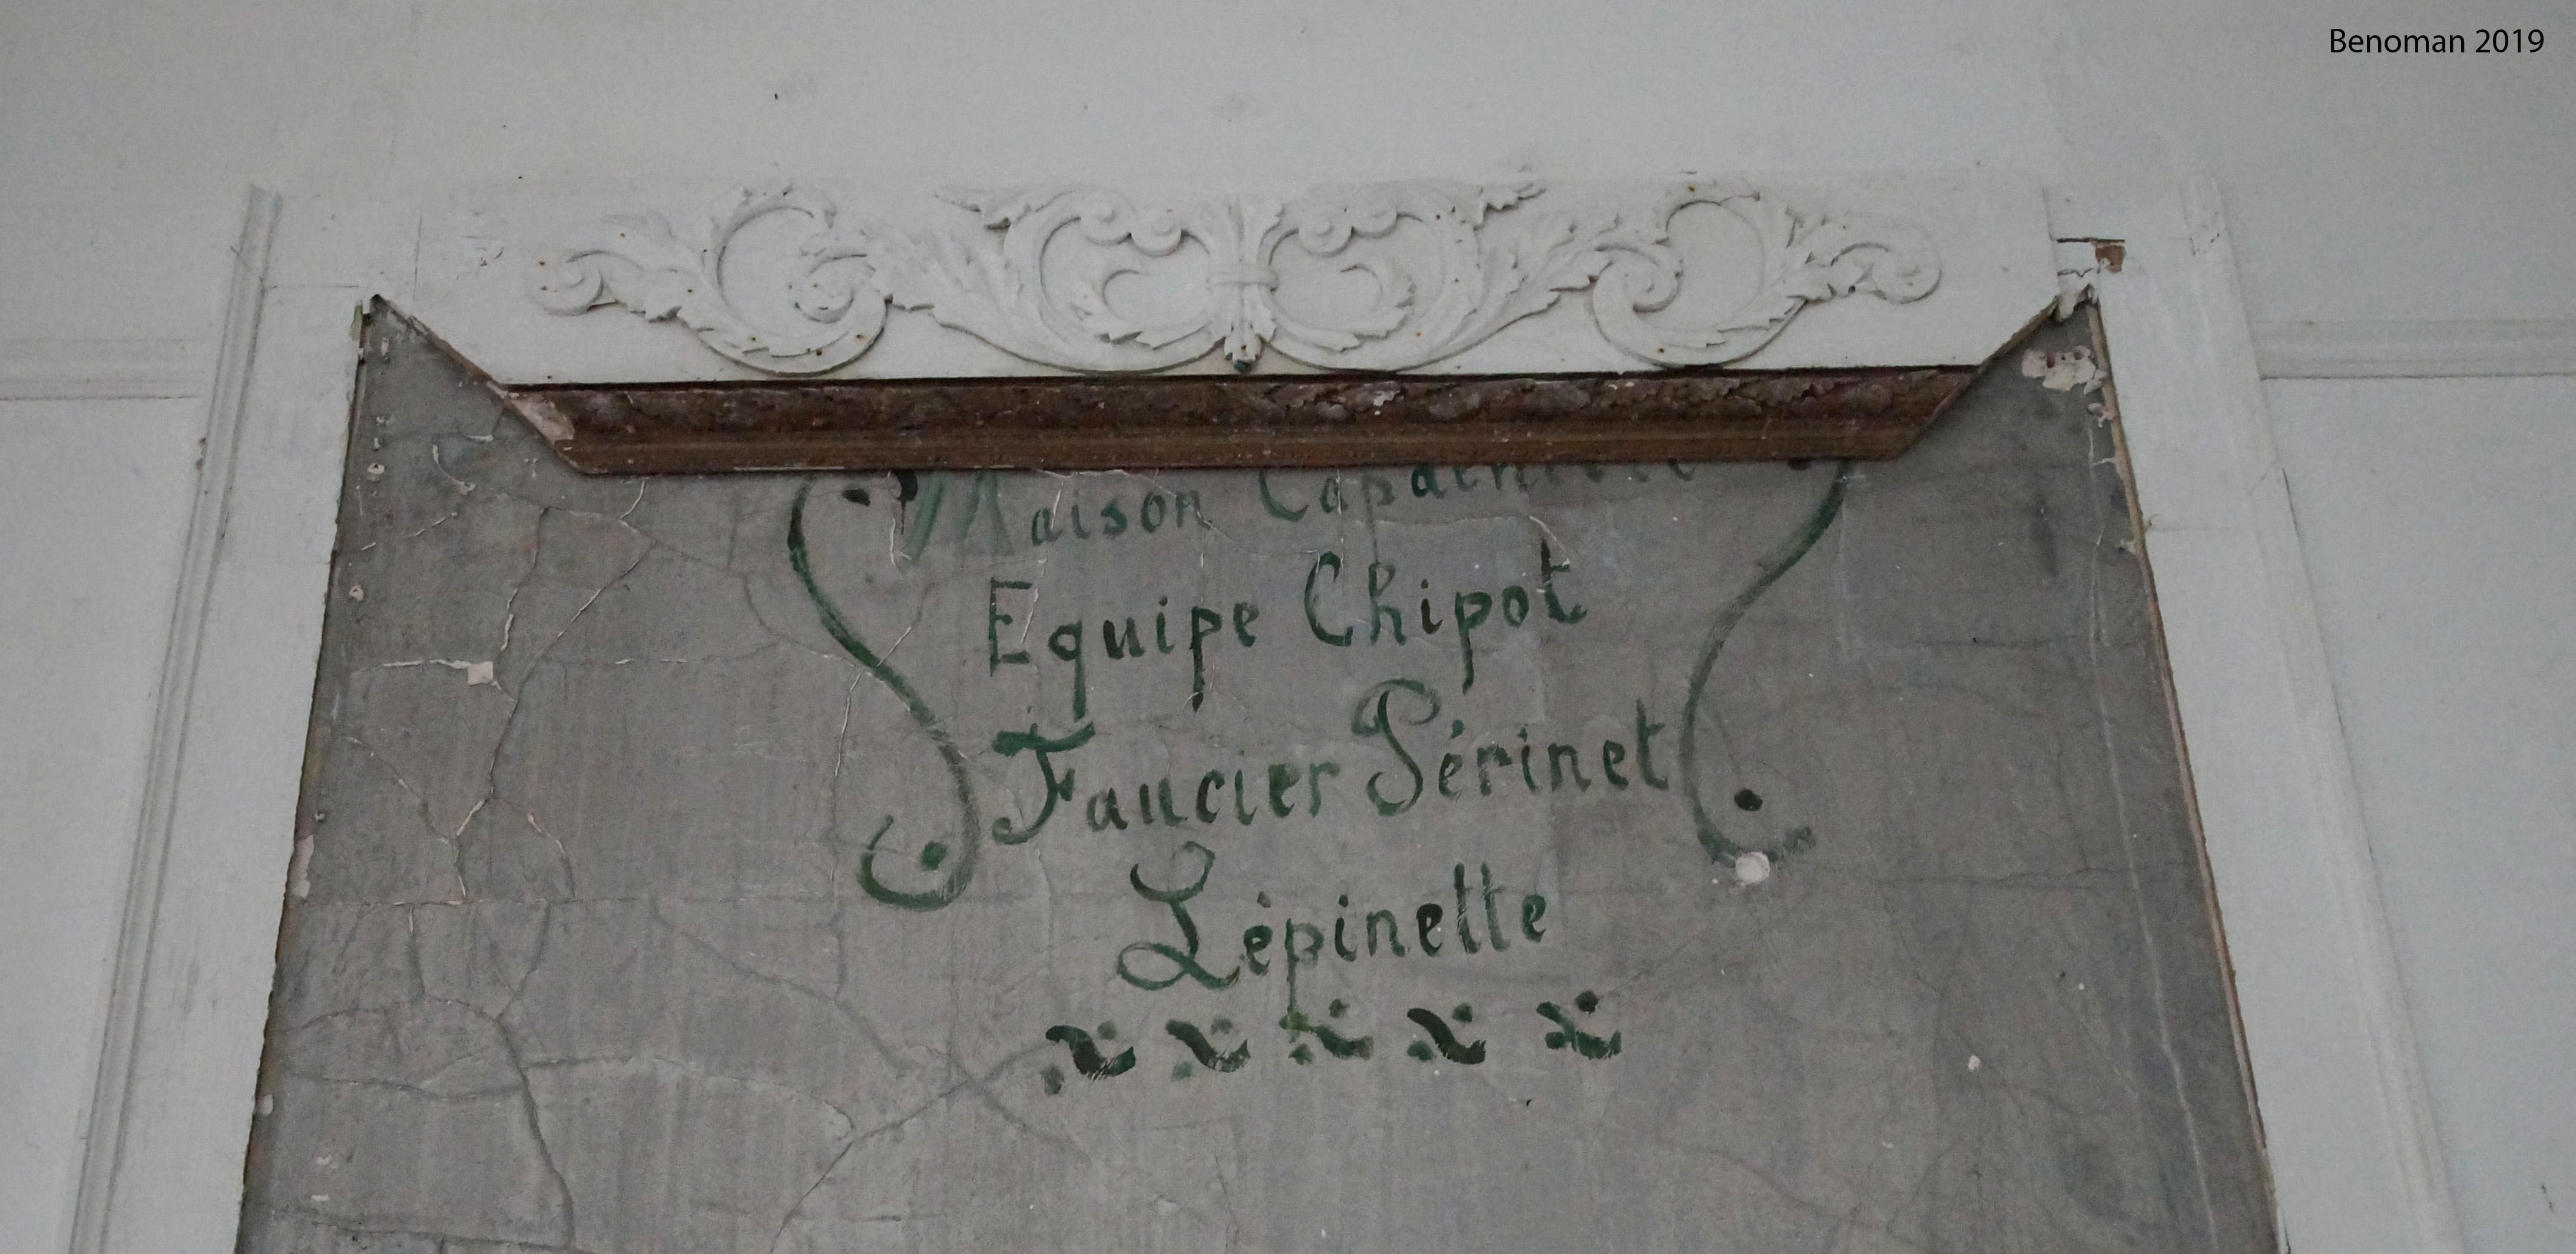 Benoman 2019
Maison
Equipe Chipot
Faucier Périnet
Lépinette